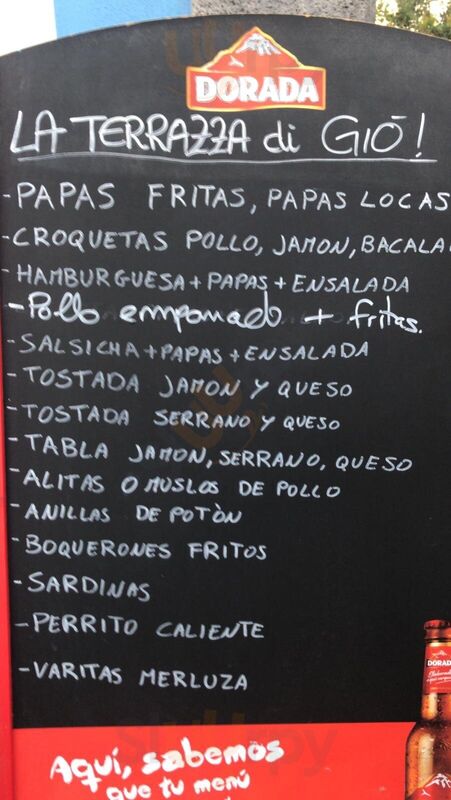 DORADA
LA TERRAZZA di GIÒ!
- PAPAS FRITAS, PAPAS LOCAS
- CROQUETAS POLLO, JAMON, BACALA
- HAMBURGUESA + PAPAS + ENSALADA
- Pollo empanado + fritas.
- SALSICHA + PAPAS + ENSALADA
- TOSTADA JAMON Y QUESO
- TOSTADA SERRANO Y QUESO
- TABLA JAMON, SERRANO, QUESO
- ALITAS O MUSLOS DE POLLO
- ANILLAS DE POTÒN
- BOQUERONES FRITOS
- SARDINAS
- PERRITO CALIENTE
- VARITAS MERLUZA
DORADA
Aquí, sabemos
que tu menú